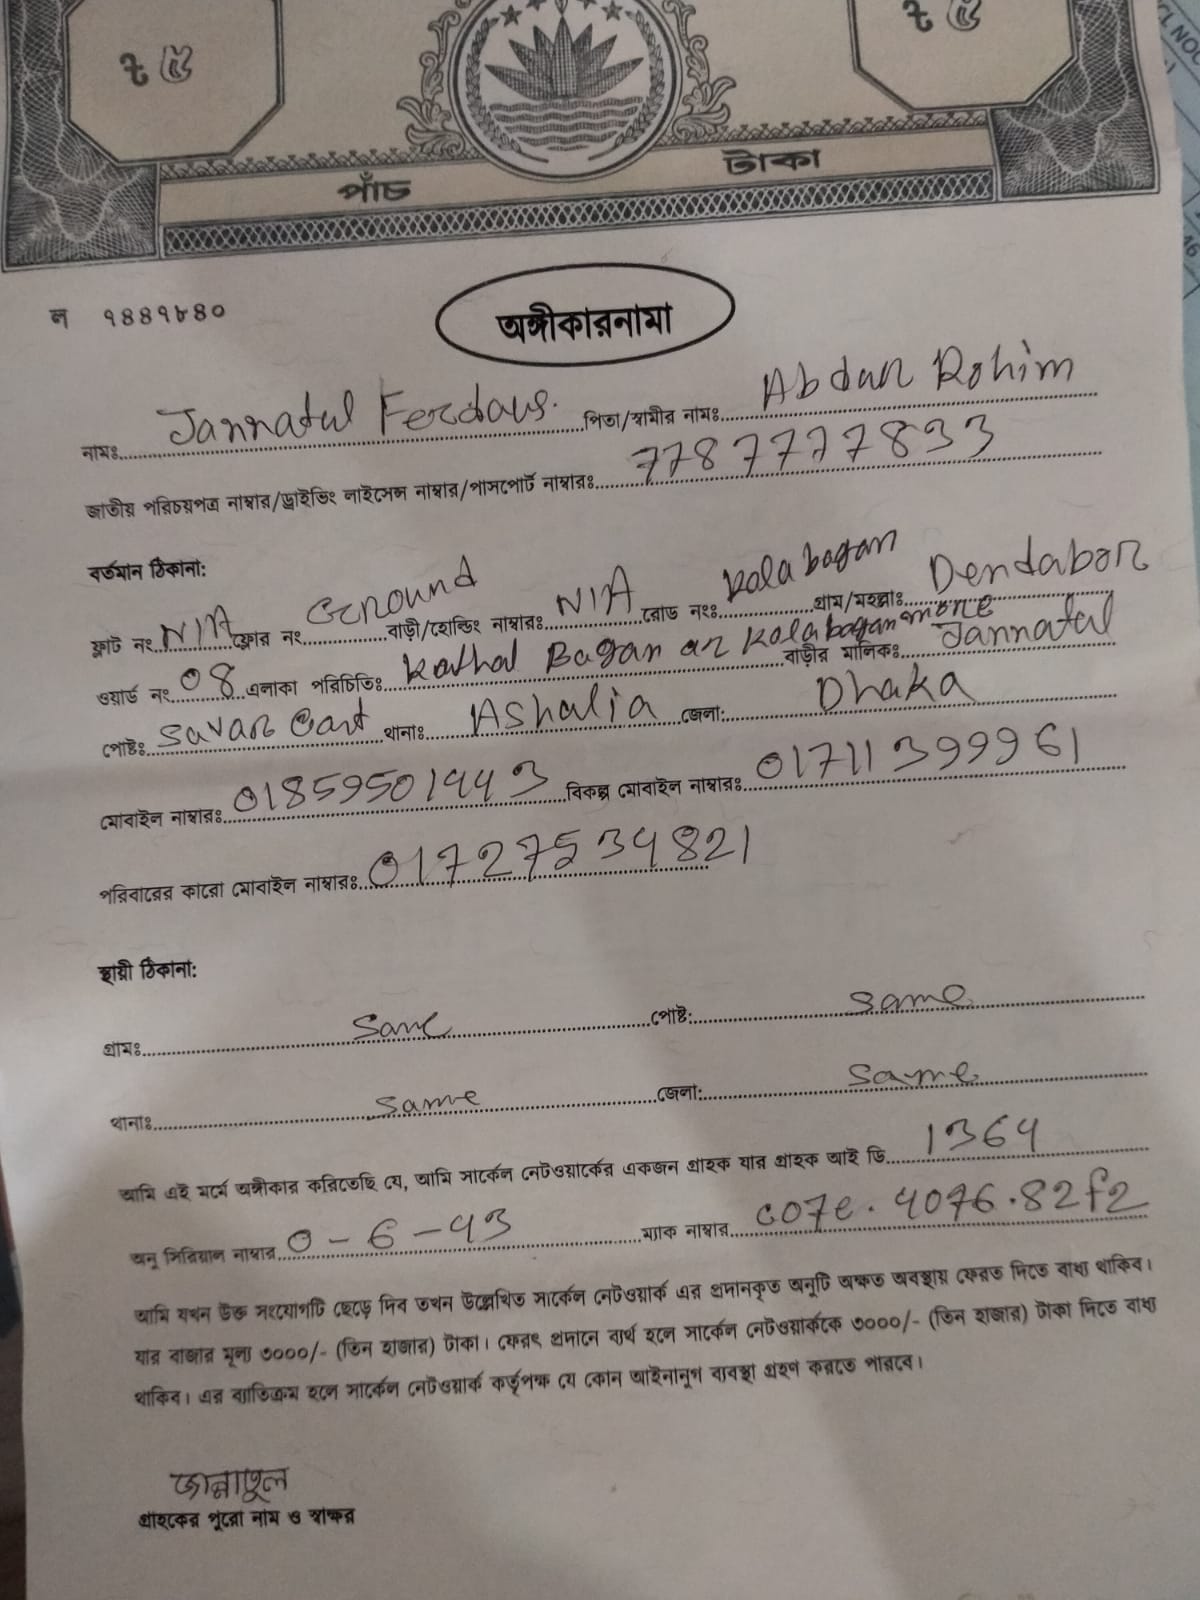 ট ৫ ট ৫
পাঁচ টাকা
ল ৭৪৪৭৮৪০
অঙ্গীকারনামা
নামঃ Jannatul Ferdous. পিতা/স্বামীর নামঃ Abdur Rohim
জাতীয় পরিচয়পত্র নাম্বার/ড্রাইভিং লাইসেন্স নাম্বার/পাসপোর্ট নাম্বারঃ 7787777833
বর্তমান ঠিকানা:
ফ্লাট নং N/A ফ্লোর নং Ground বাড়ী/হোল্ডিং নাম্বারঃ N/A রোড নংঃ Kola bagan গ্রাম/মহল্লাঃ Dendabor
ওয়ার্ড নং 08 এলাকা পরিচিতিঃ Kathal Bagan ar Kola bagan more বাড়ীর মালিকঃ Jannatul
পোষ্টঃ Savar Cant থানাঃ Ashalia জেলা: Dhaka
মোবাইল নাম্বারঃ 01859501443 বিকল্প মোবাইল নাম্বারঃ 01711399961
পরিবারের কারো মোবাইল নাম্বারঃ 01727534821
স্থায়ী ঠিকানা:
গ্রামঃ same পোষ্ট: same
থানাঃ same জেলা: same
আমি এই মর্মে অঙ্গীকার করিতেছি যে, আমি সার্কেল নেটওয়ার্কের একজন গ্রাহক যার গ্রাহক আই ডি 1364
অনু সিরিয়াল নাম্বার 0-6-43 ম্যাক নাম্বার c07e.4076.82f2
আমি যখন উক্ত সংযোগটি ছেড়ে দিব তখন উল্লেখিত সার্কেল নেটওয়ার্ক এর প্রদানকৃত অনুটি অক্ষত অবস্থায় ফেরত দিতে বাধ্য থাকিব।
যার বাজার মূল্য ৩০০০/- (তিন হাজার) টাকা। ফেরৎ প্রদানে ব্যর্থ হলে সার্কেল নেটওয়ার্ককে ৩০০০/- (তিন হাজার) টাকা দিতে বাধ্য
থাকিব। এর ব্যতিক্রম হলে সার্কেল নেটওয়ার্ক কর্তৃপক্ষ যে কোন আইনানুগ ব্যবস্থা গ্রহণ করতে পারবে।
জান্নাতুল
গ্রাহকের পুরো নাম ও স্বাক্ষর